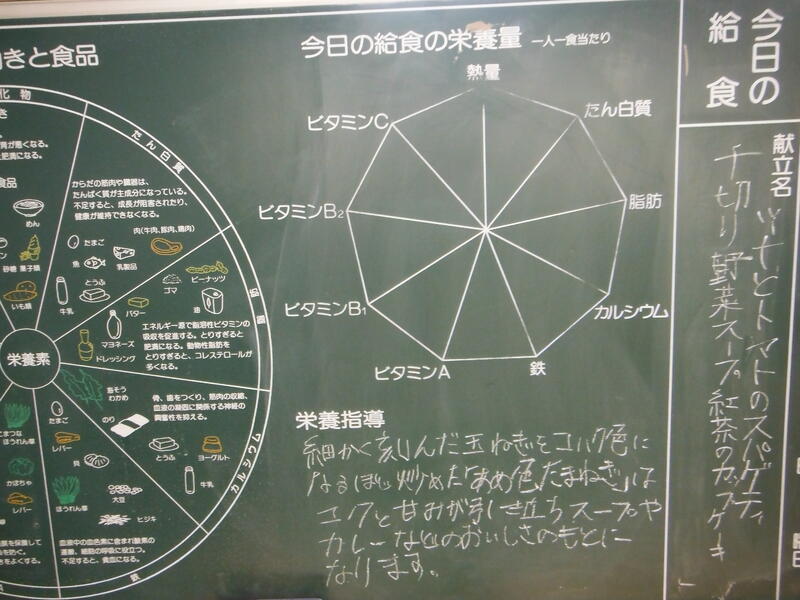 今日の給食
献立名
ツナとトマトのスパゲティ
千切り野菜スープ 紅茶のカップケーキ
今日の給食の栄養量 一人一食当たり
熱量
たん白質
脂肪
カルシウム
鉄
ビタミンA
ビタミンB1
ビタミンB2
ビタミンC
栄養指導
細かく刻んだ玉ねぎをコハク色に
なるまで炒めた「あめ色たまねぎ」は
コクと甘みが引き立ちスープや
カレーなどのおいしさのもとに
なります。
きと食品
化物
たん白質
からだの筋肉や臓器は、
たんぱく質が主成分になっている。
不足すると、成長が阻害されたり、
健康が維持できなくなる。
肉(牛肉、豚肉、鶏肉)
たまご
魚
乳製品
とうふ
牛乳
脂肪
ピーナッツ
ゴマ
油
バター
マヨネーズ
ドレッシング
エネルギー源で脂溶性ビタミンの
吸収を促進する。とりすぎると
肥満になる。動物性脂肪を
とりすぎると、コレステロールが
多くなる。
栄養素
カルシウム
骨、歯をつくり、筋肉の収縮、
血液の凝固に関係する神経の
興奮性を抑える。
海そう
わかめ
のり
とうふ
ヨーグルト
牛乳
鉄
たまご
レバー
貝
大豆
ほうれん草
ヒジキ
血液中の血色素に含まれ酸素の
運搬、細胞の呼吸に役立つ。
不足すると、貧血になる。
食品
めん
砂糖 菓子類
いも類
こまつな
ほうれん草
かぼちゃ
レバー